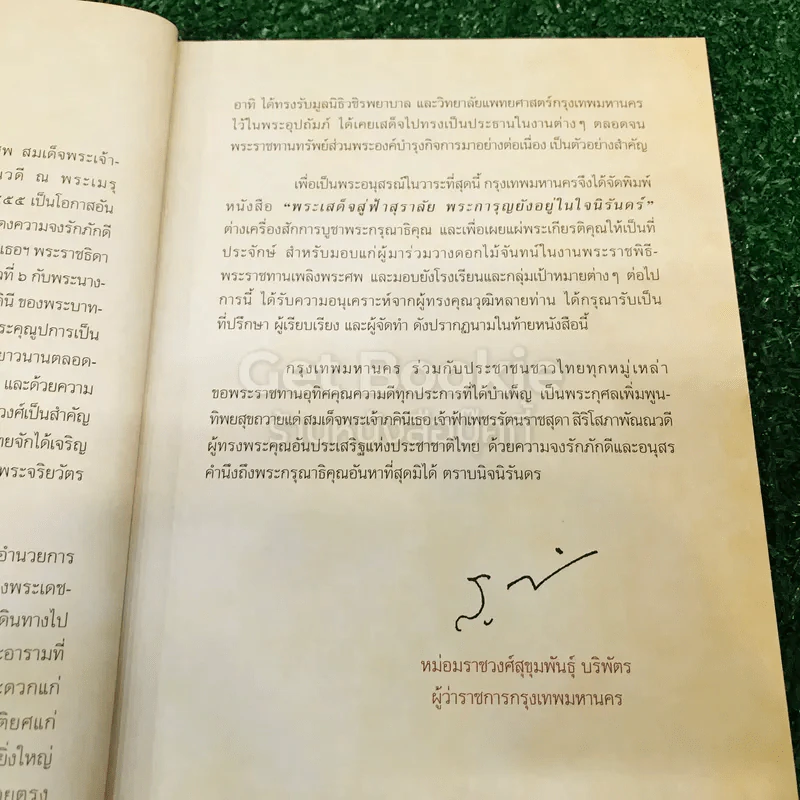 ศพ สมเด็จพระเจ้า-
วดี ณ พระเมรุ
๕๕๕ เป็นโอกาสอัน
ดงความจงรักภักดี
เธอฯ พระราชธิดา
ที่ ๖ กับพระนาง-
ของพระบาท-
ระคุณูปการเป็น
ยาวนานตลอด-
และด้วยความ
วงศ์เป็นสำคัญ
ทยจักได้เจริญ
พระจริยวัตร
อำนวยการ
งพระเดช-
ดินทางไป
ะอารามที่
ะดวกแก่
ติยศแก่
ยิ่งใหญ่
ยตรง
อาทิ ได้ทรงรับมูลนิธิวชิรพยาบาล และวิทยาลัยแพทยศาสตร์กรุงเทพมหานคร
ไว้ในพระอุปถัมภ์ ได้เคยเสด็จไปทรงเป็นประธานในงานต่างๆ ตลอดจน
พระราชทานทรัพย์ส่วนพระองค์บำรุงกิจการมาอย่างต่อเนื่อง เป็นตัวอย่างสำคัญ
เพื่อเป็นพระอนุสรณ์ในวาระที่สุดนี้ กรุงเทพมหานครจึงได้จัดพิมพ์
หนังสือ “พระเสด็จสู่ฟ้าสุราลัย พระการุญยังอยู่ในใจนิรันดร์”
ต่างเครื่องสักการบูชาพระกรุณาธิคุณ และเพื่อเผยแผ่พระเกียรติคุณให้เป็นที่
ประจักษ์ สำหรับมอบแก่ผู้มาร่วมวางดอกไม้จันทน์ในงานพระราชพิธี-
พระราชทานเพลิงพระศพ และมอบยังโรงเรียนและกลุ่มเป้าหมายต่างๆ ต่อไป
การนี้ ได้รับความอนุเคราะห์จากผู้ทรงคุณวุฒิหลายท่าน ได้กรุณารับเป็น
ที่ปรึกษา ผู้เรียบเรียง และผู้จัดทำ ดังปรากฏนามในท้ายหนังสือนี้
กรุงเทพมหานคร ร่วมกับประชาชนชาวไทยทุกหมู่เหล่า
ขอพระราชทานอุทิศคุณความดีทุกประการที่ได้บำเพ็ญ เป็นพระกุศลเพิ่มพูน-
ทิพยสุขถวายแด่ สมเด็จพระเจ้าภคินีเธอ เจ้าฟ้าเพชรรัตนราชสุดา สิริโสภาพัณณวดี
ผู้ทรงพระคุณอันประเสริฐแห่งประชาชาติไทย ด้วยความจงรักภักดีและอนุสร
คำนึงถึงพระกรุณาธิคุณอันหาที่สุดมิได้ ตราบนิจนิรันดร
หม่อมราชวงศ์สุขุมพันธุ์ บริพัตร
ผู้ว่าราชการกรุงเทพมหานคร
Get Bookie
ร้านหนังสือเป๊กกี้